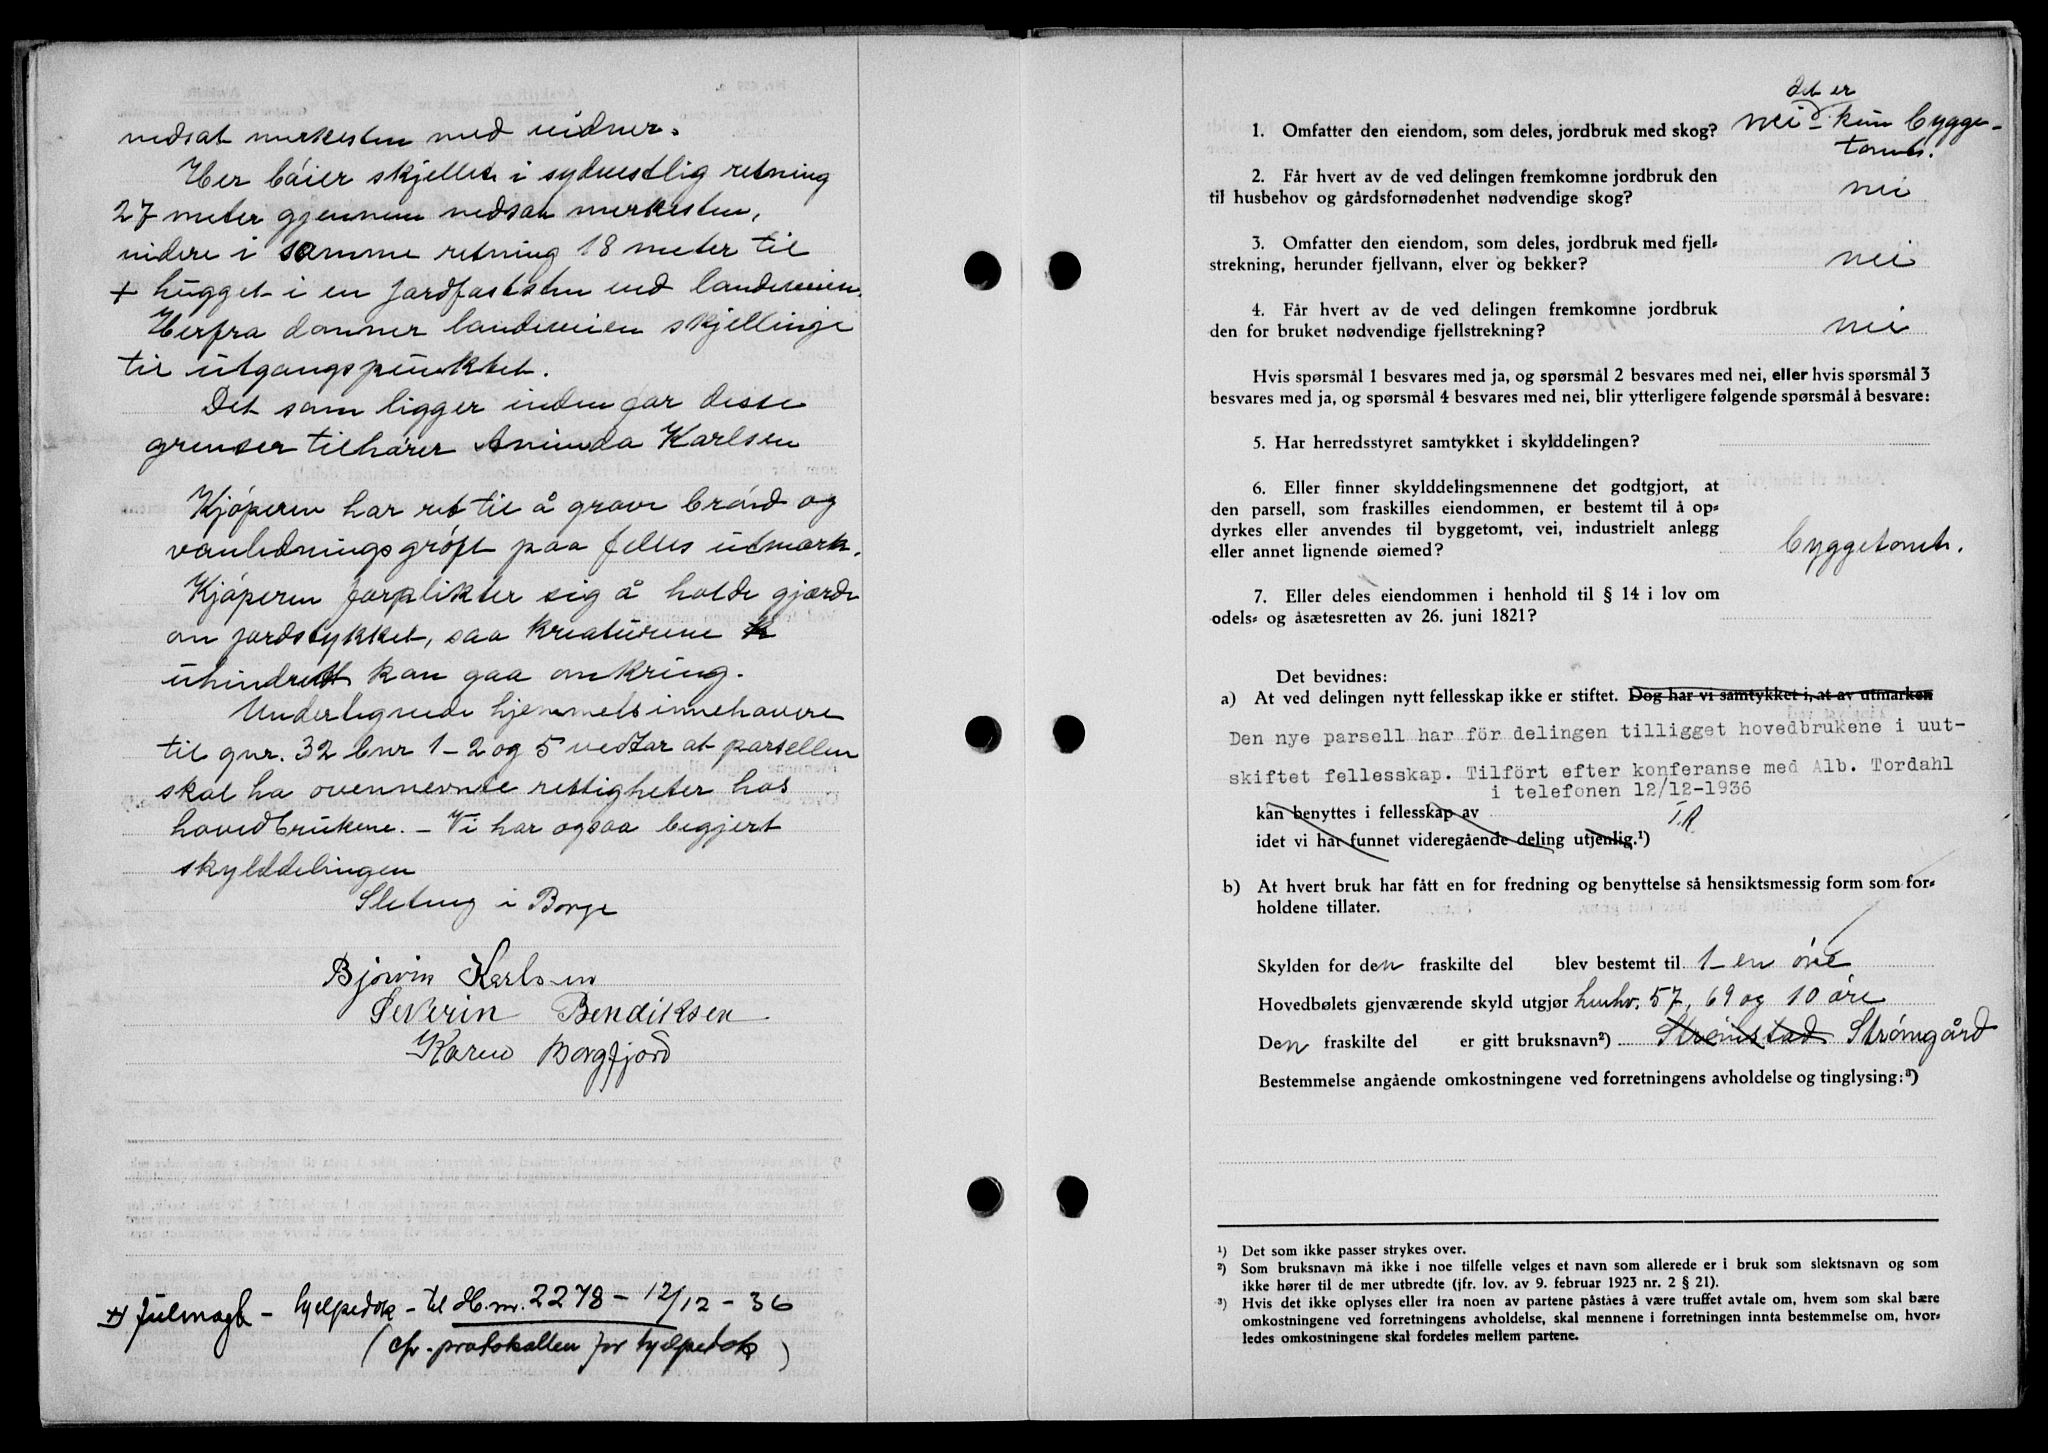 nedsat merkesten med vidner.
Her bøier skjellet i sydvestlig retning
27 meter gjennem nedsat merkesten,
videre i samme retning 18 meter til
+ hugget i en jordfaststen ved landeveien.
Herfra danner landeveien skjellinje
til utgangspunktet.
Det som ligger inden for disse
grenser tilhører Aminda Karlsen
Kjøperen har ret til å grave brønd og
vanledningsgrøft paa felles utmark.
Kjøperen forplikter sig å holde gjærde
om jordstykket, saa kreaturene
uhindret kan gaa omkring.
Undertegnede hjemmelsinnehavere
til gnr. 32 bnr 1-2 og 5 vedtar at parsellen
skal ha ovennevnte rettigheter hos
hovedbrukene. – Vi har ogsaa begjert
skylddelingen
i Borge
Bjørvin Karlsen
Severin Bendiksen
Karen Borgfjord
+) fullmagt – hjelpedok – til db. nr. 2278 – 12/12 – 36
(cfr. protokollen for hjelpedok)
det er
1. Omfatter den eiendom, som deles, jordbruk med skog? nei – kun bygge-
tomt.
2. Får hvert av de ved delingen fremkomne jordbruk den
til husbehov og gårdsfornødenhet nødvendige skog? nei
3. Omfatter den eiendom, som deles, jordbruk med fjell-
strekning, herunder fjellvann, elver og bekker? nei
4. Får hvert av de ved delingen fremkomne jordbruk
den for bruket nødvendige fjellstrekning? nei
Hvis spørsmål 1 besvares med ja, og spørsmål 2 besvares med nei, eller hvis spørsmål 3
besvares med ja, og spørsmål 4 besvares med nei, blir ytterligere følgende spørsmål å besvare:
5. Har herredsstyret samtykket i skylddelingen?
6. Eller finner skylddelingsmennene det godtgjort, at
den parsell, som fraskilles eiendommen, er bestemt til å op-
dyrkes eller anvendes til byggetomt, vei, industrielt anlegg
eller annet lignende øiemed? byggetomt.
7. Eller deles eiendommen i henhold til § 14 i lov om
odels- og åsætesretten av 26. juni 1821?
Det bevidnes:
a) At ved delingen nytt fellesskap ikke er stiftet. Dog har vi samtykket i, at av utmarken
Den nye parsell har för delingen tilligget hovedbrukene i uut-
skiftet fellesskap. Tilfört efter konferanse med Alb. Tordahl
i telefonen 12/12-1936
kan benyttes i fellesskap av
idet vi har funnet videregående deling utjenlig.¹)
b) At hvert bruk har fått en for fredning og benyttelse så hensiktsmessig form som for-
holdene tillater.
Skylden for den fraskilte del blev bestemt til 1 – en øre
Hovedbølets gjenværende skyld utgjør henhv. 57, 69 og 10 øre
Den fraskilte del er gitt bruksnavn²) Strømstad Strømgård
Bestemmelse angående omkostningene ved forretningens avholdelse og tinglysing:³)
¹) Det som ikke passer strykes over.
²) Som bruksnavn må ikke i noe tilfelle velges et navn som allerede er i bruk som slektsnavn og som
ikke hører til de mer utbredte (jfr. lov. av 9. februar 1923 nr. 2 § 21).
³) Hvis det ikke oplyses eller fra noen av partene påståes å være truffet avtale om, hvem som skal bære
omkostningene ved forretningens avholdelse, skal mennene i forretningen innta bestemmelse om, hvor-
ledes omkostningene skal fordeles mellem partene.